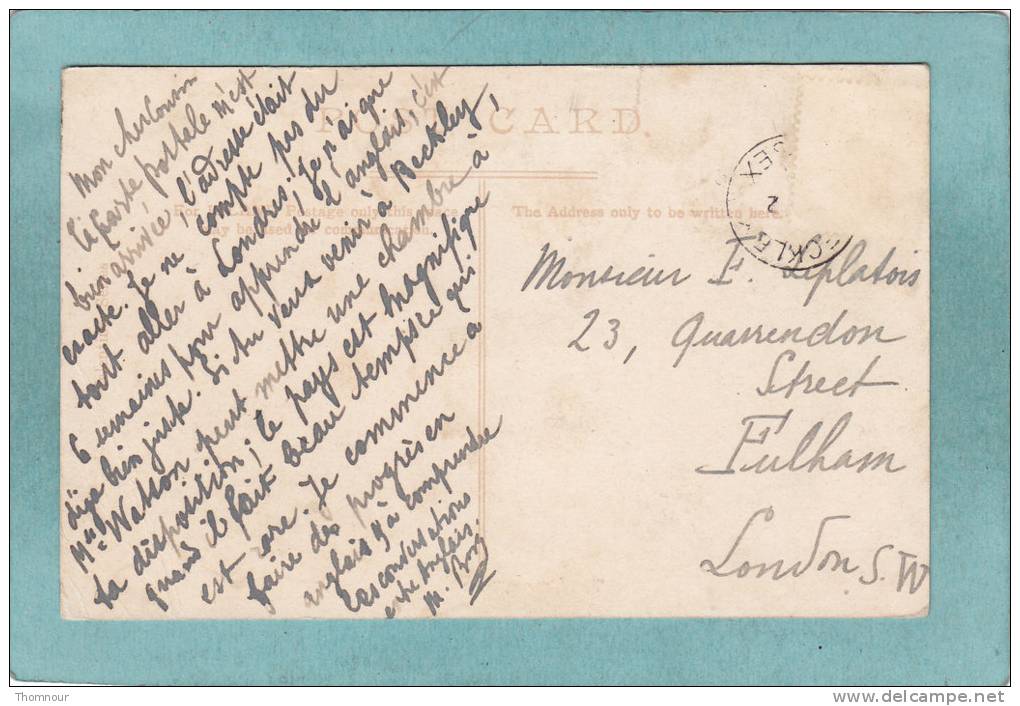 Mon cher Cousin
Ta Carte postale m'est
bien arrivée, l'adresse était
exacte. Je ne compte pas du
tout aller à Londres. Je n'ai que
6 semaines pour apprendre l'anglais, c'est
déjà bien juste. Si tu veux venir à Beckley,
Mme Watson peut mettre une chambre à
ta disposition; le pays est magnifique
quand il fait beau temps ce qui
est rare. Je commence à
faire des progrès en
anglais & à comprendre
les conversations
entre Anglais.
M.
POST CARD.
For Postage only this space
may be used for communication.
The Address only to be written here.
2
Monsieur F. Leplatois
23, Quarrendon
Street
Fulham
London S.W
Thomnour
www.delcampe.net